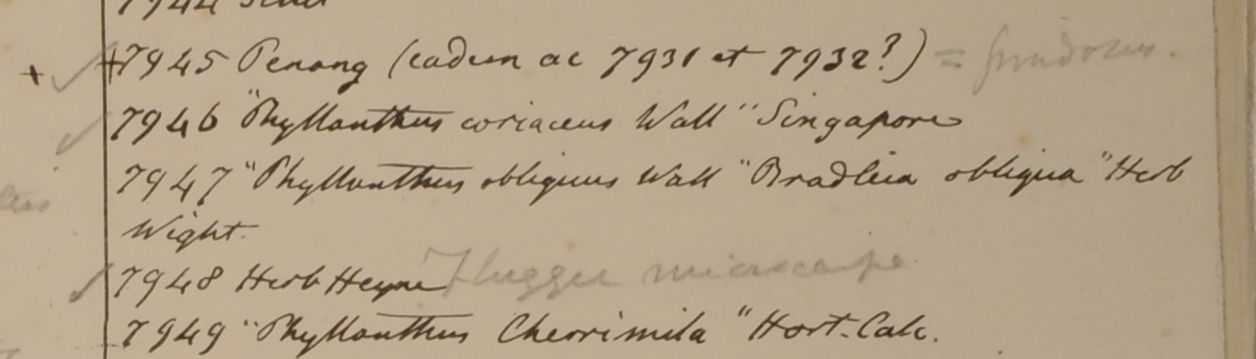 7944
+ 7945 Penang (eadem ac 7931 et 7932?) =
7946 "Phyllanthus coriaceus Wall" Singapore
7947 "Phyllanthus obliquus Wall "Bradleia obliqua" Herb
Wight.
7948 Herb Heyne Fluggea microcarpa
7949 "Phyllanthus Cherrimila" Hort. Calc.